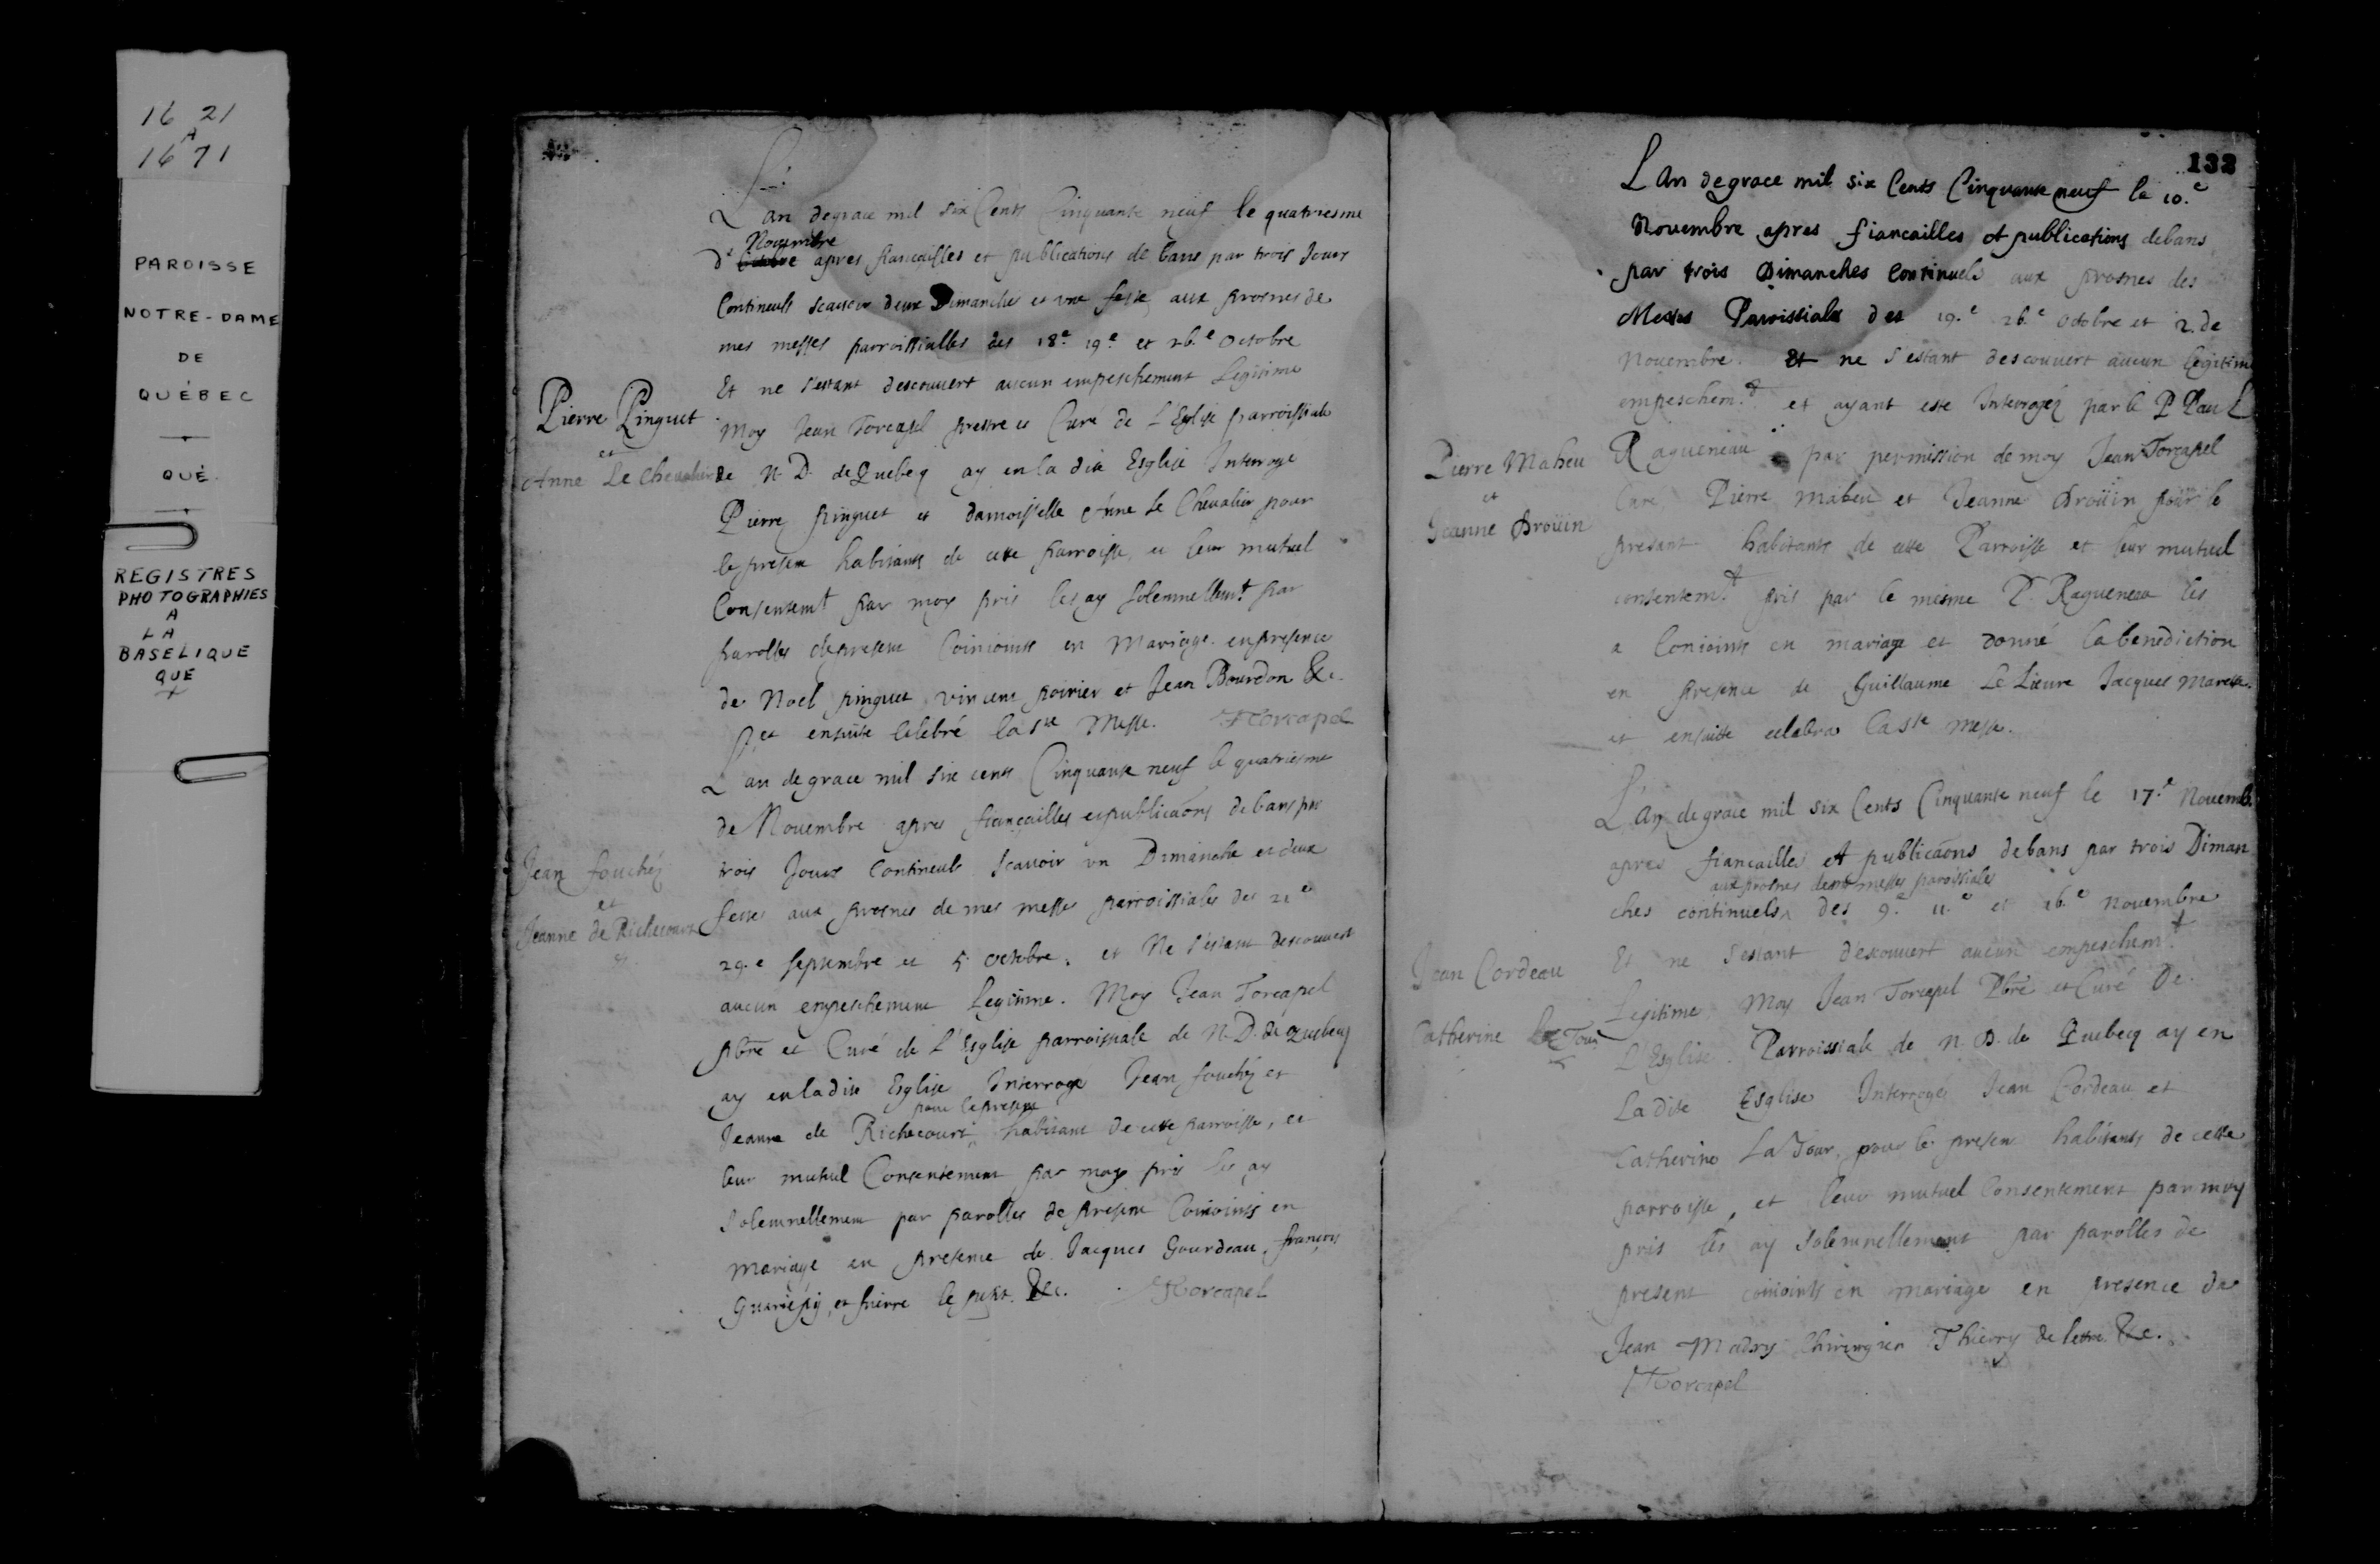 16 21
A
16 71
PAROISSE
NOTRE-DAME
DE
QUÉBEC
QUÉ.
REGISTRES
PHOTOGRAPHIES
A
LA
BASELIQUE
QUE
L'an de grace mil six Cents Cinquante neuf le quatriesme
Nouembre
d' octobre apres fiancailles et publications de bans par trois Jours
Continuels scauoir deux Dimanches et vne feste aux prosnes de
mes messes parroissialles des 18.e 19.e et 26.e Octobre
Et ne s'estant descouuert aucun empeschement Legitime
Pierre Pinguet
et
Anne Le Cheualier
Moy Jean Torcapel prestre et Cure de L'Eglise parroissiale
de N. D. de Quebeq ay en la dite Esglise Interrogé
Pierre pinguet et damoiselle Anne le Cheualier pour
le present habitants de cette parroisse et leur mutuel
Consentem.t par moy pris les ay solemnellem.t par
parolles de present Conioints en Mariage en presence
de Noel pinguet vincent poirier et Jean Bourdon &c.
et ensuite celebré la s.te Messe. JTorcapel
L'an de grace mil six cents Cinquante neuf le quatriesme
de Nouembre apres fiançailles et publicaons de bans par
Jean fouché
et
Jeanne de Richecourt
trois Jours Continuels scauoir vn Dimanche et deux
festes aux prosnes de mes messes parroissiales des 21.e
29.e septembre et 5 octobre. et Ne s'estant descouuert
aucun empeschement Legitime. Moy Jean Torcapel
pbre et Curé de L'Esglise parroissiale de N. D. de Quebecq
ay en la dite Esglise Interrogé Jean fouché et
pour le present
Jeanne de Richecourt habitant de cette parroisse, et
leur mutuel Consentement par moy pris les ay
solemnellement par parolles de present Conioints en
mariage en presence de Jacques Gourdeau, françois
Guariepy, et pierre le petit. &c. JTorcapel
132
L'An de grace mil six Cents Cinquante neuf le 10.e
Nouembre apres fiancailles et publications de bans
par trois Dimanches Continuels aux prosnes des
Messes Parroissiales des 19.e 26.e Octobre et 2. de
Nouembre. Et ne s'estant descouuert aucun legitime
empeschem.t et ayant esté Interrogéz par le P Paul
Pierre Maheu
et
Jeanne Droüin
Ragueneau par permission de moy Jean Torcapel
Cure Pierre maheu et Jeanne Droüin pour le
presant habitants de cette Parroisse et leur mutuel
consentem.t pris par le mesme P. Ragueneau les
a Conioints en mariage et donné la benediction
en presence de Guillaume Le Lieure Jacques Marette
et ensuitte celebra la s.te messe.
L'An de grace mil six Cents Cinquante neuf le 17.e Nouemb.
apres fiancailles et publicaons de bans par trois Diman
aux prosnes de mes messes paroissiales
ches continuels des 9.e 11.e et 16.e Nouembre
Et ne s'estant descouuert aucun empeschem.t
Jean Cordeau
Catherine La Tour
Legitime, Moy Jean Torcapel Pbre et Curé De
L'Eglise Parroissiale de N. D. de Quebecq ay en
La dite Esglise Interrogé Jean Cordeau et
Catherine La Tour, pour le present habitants de cette
parroisse, et leur mutuel Consentement par moy
pris les ay solemnellement par parolles de
present conioints en mariage en presence de
Jean Madry Chirurgien Thierry de lettre &c.
JTorcapel